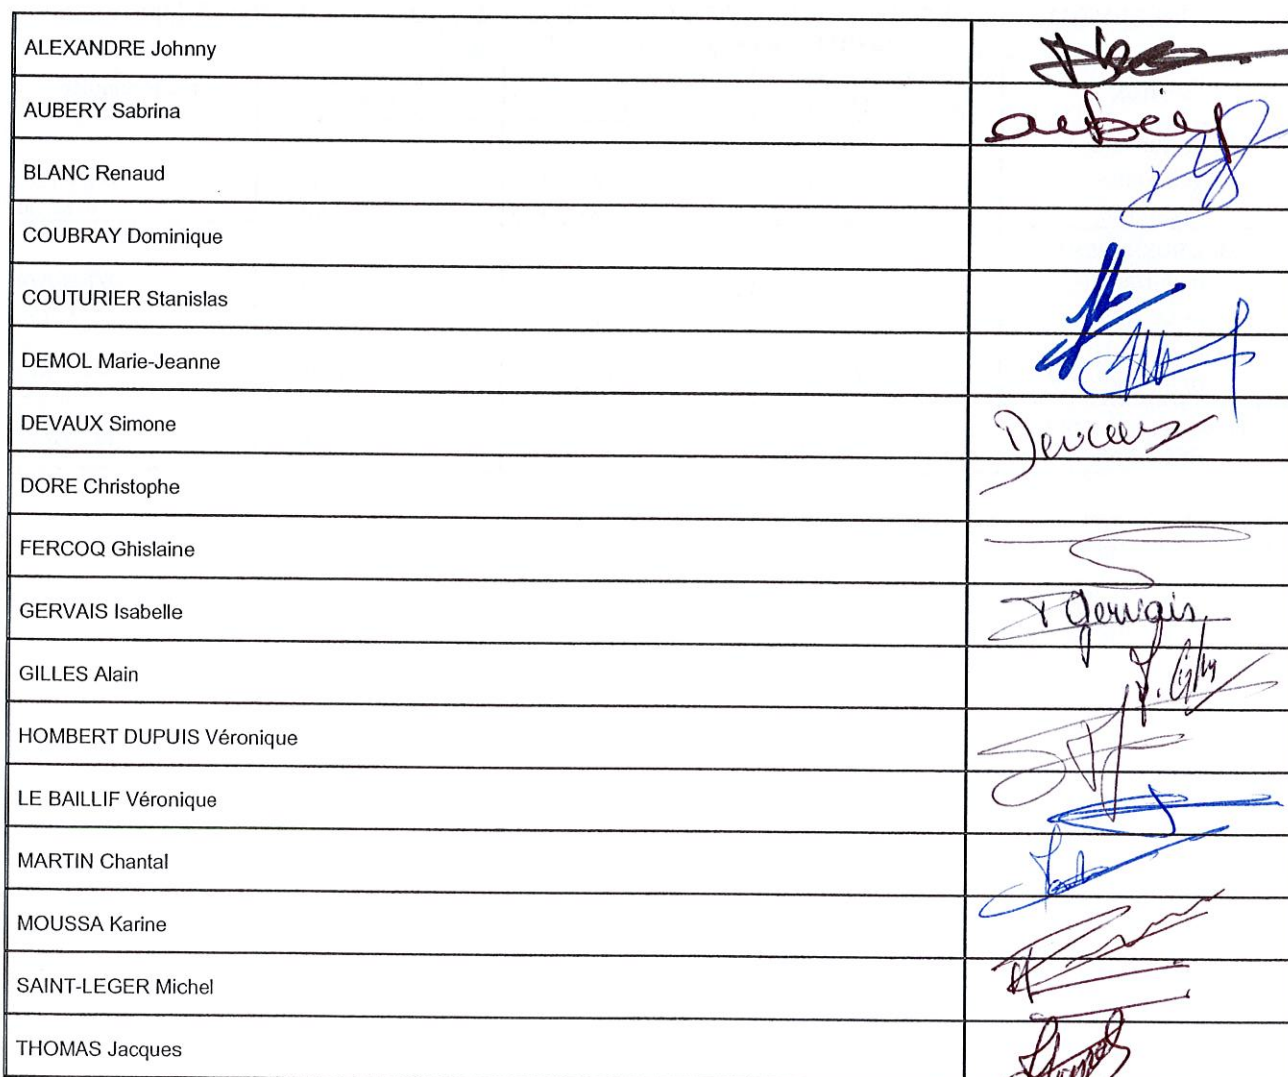 ALEXANDRE Johnny
AUBERY Sabrina
aubery
BLANC Renaud
COUBRAY Dominique
COUTURIER Stanislas
DEMOL Marie-Jeanne
DEVAUX Simone
DORE Christophe
FERCOQ Ghislaine
GERVAIS Isabelle
gervais
GILLES Alain
HOMBERT DUPUIS Véronique
LE BAILLIF Véronique
MARTIN Chantal
MOUSSA Karine
SAINT-LEGER Michel
THOMAS Jacques